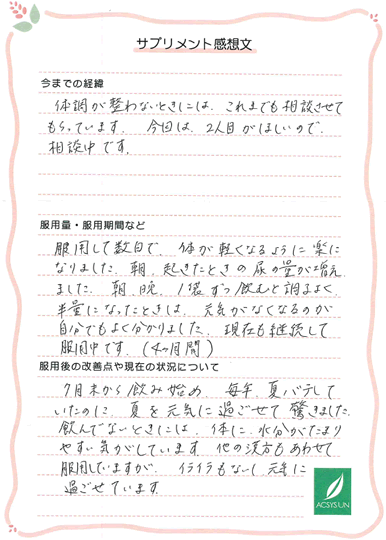 サプリメント感想文
今までの経緯
体調が整わないときには、これまでも相談させて
もらっています。今回は、2人目がほしいので、
相談中です。
服用量・服用期間など
服用して数日で、体が軽くなるように楽に
なりました。朝、起きたときの尿の量が増え
ました。朝、晩、1袋ずつ飲むと調子よく、
半量になったときは、元気がなくなるのが
自分でもよく分かりました。現在も継続して
服用中です。(4ヶ月間)
服用後の改善点や現在の状況について
7月末から飲み始め、毎年、夏バテして
いたのに、夏を元気に過ごせて驚きました。
飲んでないときには、体に水分がたまり
やすい気がしています。他の漢方もあわせて
服用していますが、イライラもないし元気に
過ごせています。
ACSYS UN